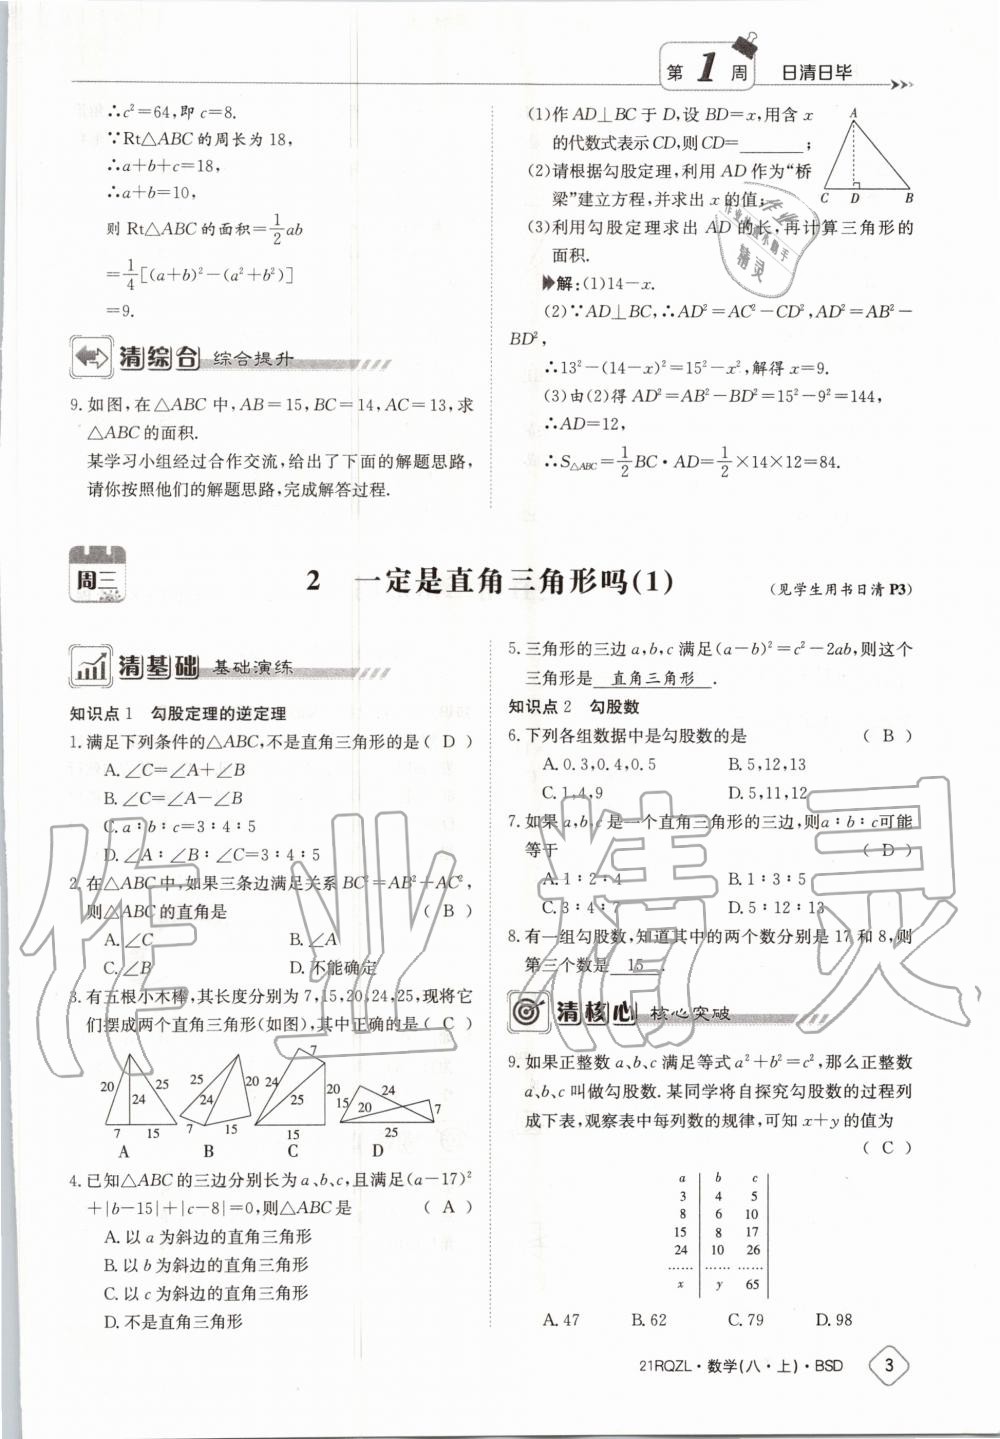 第1周 日清日毕
∴c²=64,即 c=8.
∵Rt△ABC 的周长为 18,
∴a+b+c=18,
∴a+b=10,
则 Rt△ABC 的面积=1/2ab
=1/4[(a+b)²-(a²+b²)]
=9.
清综合 综合提升
9.如图,在△ABC 中,AB=15,BC=14,AC=13,求
△ABC 的面积.
某学习小组经过合作交流,给出了下面的解题思路,
请你按照他们的解题思路,完成解答过程.
(1)作 AD⊥BC 于 D,设 BD=x,用含 x
的代数式表示 CD,则 CD=______;
(2)请根据勾股定理,利用 AD 作为“桥
梁”建立方程,并求出 x 的值;
(3)利用勾股定理求出 AD 的长,再计算三角形的
面积.
A
C D B
解:(1)14-x.
(2)∵AD⊥BC,∴AD²=AC²-CD²,AD²=AB²-
BD²,
∴13²-(14-x)²=15²-x²,解得 x=9.
(3)由(2)得 AD²=AB²-BD²=15²-9²=144,
∴AD=12,
∴S△ABC=1/2BC·AD=1/2×14×12=84.
周三
2 一定是直角三角形吗(1)
(见学生用书日清 P3)
清基础 基础演练
知识点 1 勾股定理的逆定理
1.满足下列条件的△ABC,不是直角三角形的是( D )
A.∠C=∠A+∠B
B.∠C=∠A-∠B
C.a∶b∶c=3∶4∶5
D.∠A∶∠B∶∠C=3∶4∶5
2.在△ABC 中,如果三条边满足关系 BC²=AB²-AC²,
则△ABC 的直角是 ( B )
A.∠C B.∠A
C.∠B D.不能确定
3.有五根小木棒,其长度分别为 7,15,20,24,25,现将它
们摆成两个直角三角形(如图),其中正确的是( C )
20 25 24 7 15
25 20 24 7 15
7 24 20 25 15
24 15 20 7 25
A B C D
4.已知△ABC 的三边分别长为 a、b、c,且满足(a-17)²
+|b-15|+|c-8|=0,则△ABC 是 ( A )
A.以 a 为斜边的直角三角形
B.以 b 为斜边的直角三角形
C.以 c 为斜边的直角三角形
D.不是直角三角形
5.三角形的三边 a,b,c 满足(a-b)²=c²-2ab,则这个
三角形是 直角三角形 .
知识点 2 勾股数
6.下列各组数据中是勾股数的是 ( B )
A.0.3,0.4,0.5 B.5,12,13
C.1,4,9 D.5,11,12
7.如果 a,b,c 是一个直角三角形的三边,则a∶b∶c可能
等于 ( D )
A.1∶2∶4 B.1∶3∶5
C.3∶4∶7 D.5∶12∶13
8.有一组勾股数,知道其中的两个数分别是 17 和 8,则
第三个数是 15 .
清核心 核心突破
9.如果正整数 a、b、c 满足等式 a²+b²=c²,那么正整数
a、b、c 叫做勾股数.某同学将自探究勾股数的过程列
成下表,观察表中每列数的规律,可知 x+y 的值为
( C )
a b c
3 4 5
8 6 10
15 8 17
24 10 26
…… …… ……
x y 65
A.47 B.62 C.79 D.98
21RQZL·数学(八·上)·BSD 3
作业精灵